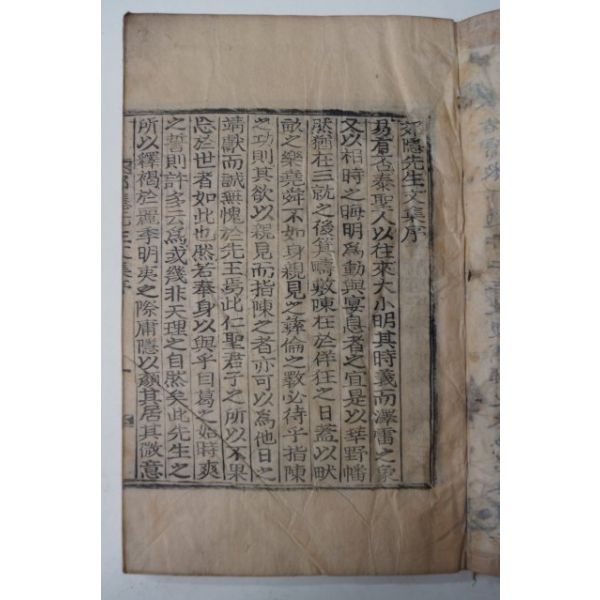 郊隱先生文集序
易有否泰聖人以往來大小明其時義而澤雷之象
又以相時之晦明爲動與宴息者之宜是以莘野幡
然猶在三就之後箕疇敷陳在於佯狂之日蓋以畎
畝之樂堯舜不如身親見之彝倫之斁必待乎指陳
之功則其欲以親見而指陳之者亦可以爲他日之
靖獻而誠無愧於先王焉此仁聖君子之所以不果
忘於世者如此也然若奉身以與乎曰葛之如時爽
之誓則許多云爲或幾非天理之自然矣此先生之
所以釋褐於麗季明夷之際庸隱以顔其居其微意